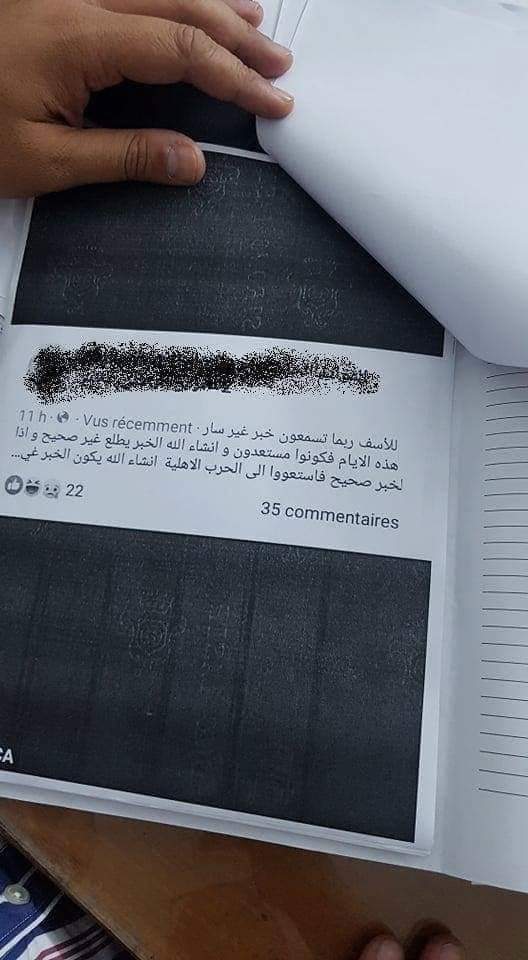 11 h · Vus récemment · للأسف ربما تسمعون خبر غير سار
هذه الايام فكونوا مستعدون و انشاء الله الخبر يطلع غير صحيح و اذا
لخبر صحيح فاستعووا الى الحرب الاهلية انشاء الله يكون الخبر غي...
22
35 commentaires
CA